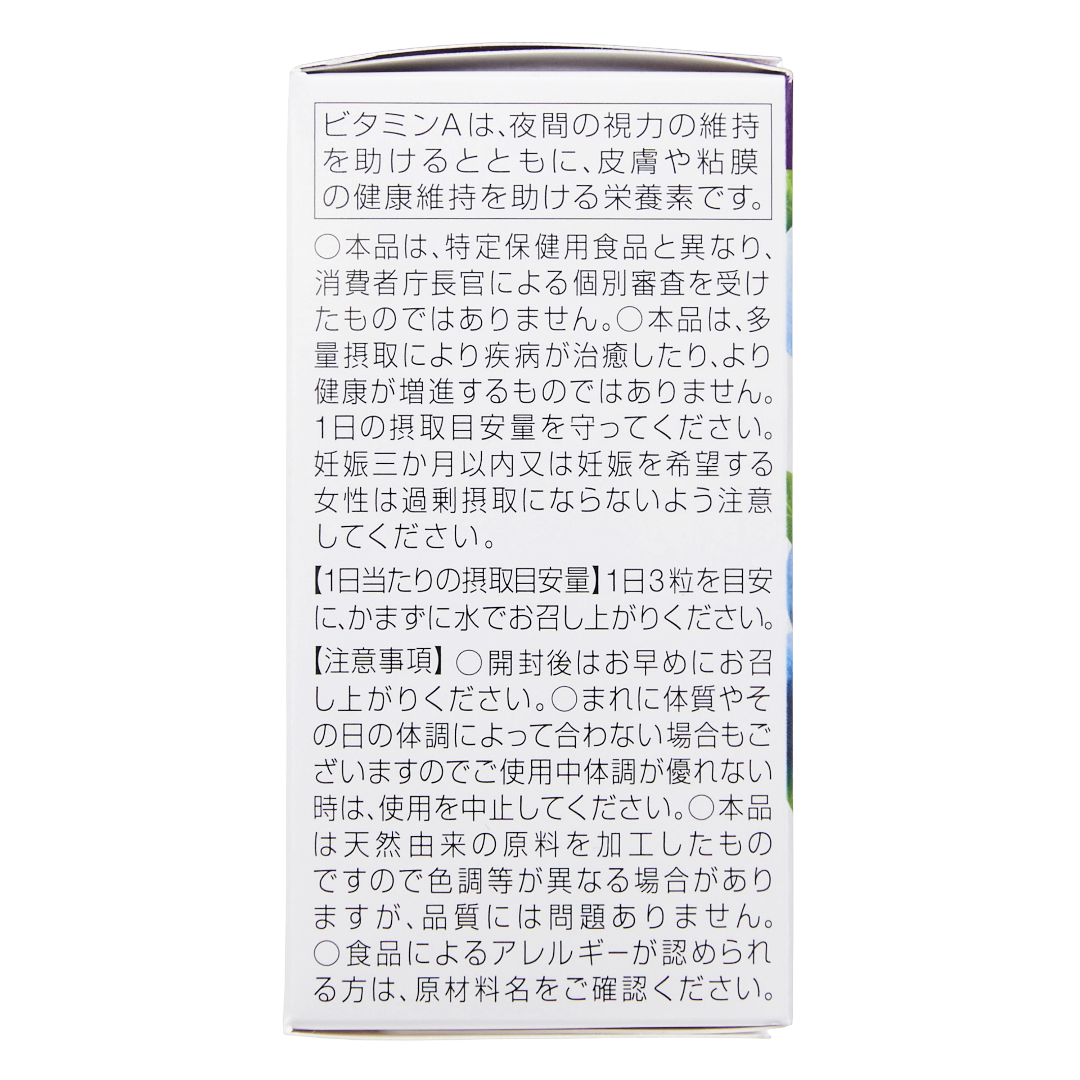 ビタミンAは、夜間の視力の維持
を助けるとともに、皮膚や粘膜
の健康維持を助ける栄養素です。
○本品は、特定保健用食品と異なり、
消費者庁長官による個別審査を受け
たものではありません。○本品は、多
量摂取により疾病が治癒したり、より
健康が増進するものではありません。
1日の摂取目安量を守ってください。
妊娠三か月以内又は妊娠を希望する
女性は過剰摂取にならないよう注意
してください。
【1日当たりの摂取目安量】1日3粒を目安
に、かまずに水でお召し上がりください。
【注意事項】○開封後はお早めにお召
し上がりください。○まれに体質やそ
の日の体調によって合わない場合もご
ざいますのでご使用中体調が優れない
時は、使用を中止してください。○本品
は天然由来の原料を加工したもの
ですので色調等が異なる場合があり
ますが、品質には問題ありません。
○食品によるアレルギーが認められ
る方は、原材料名をご確認ください。